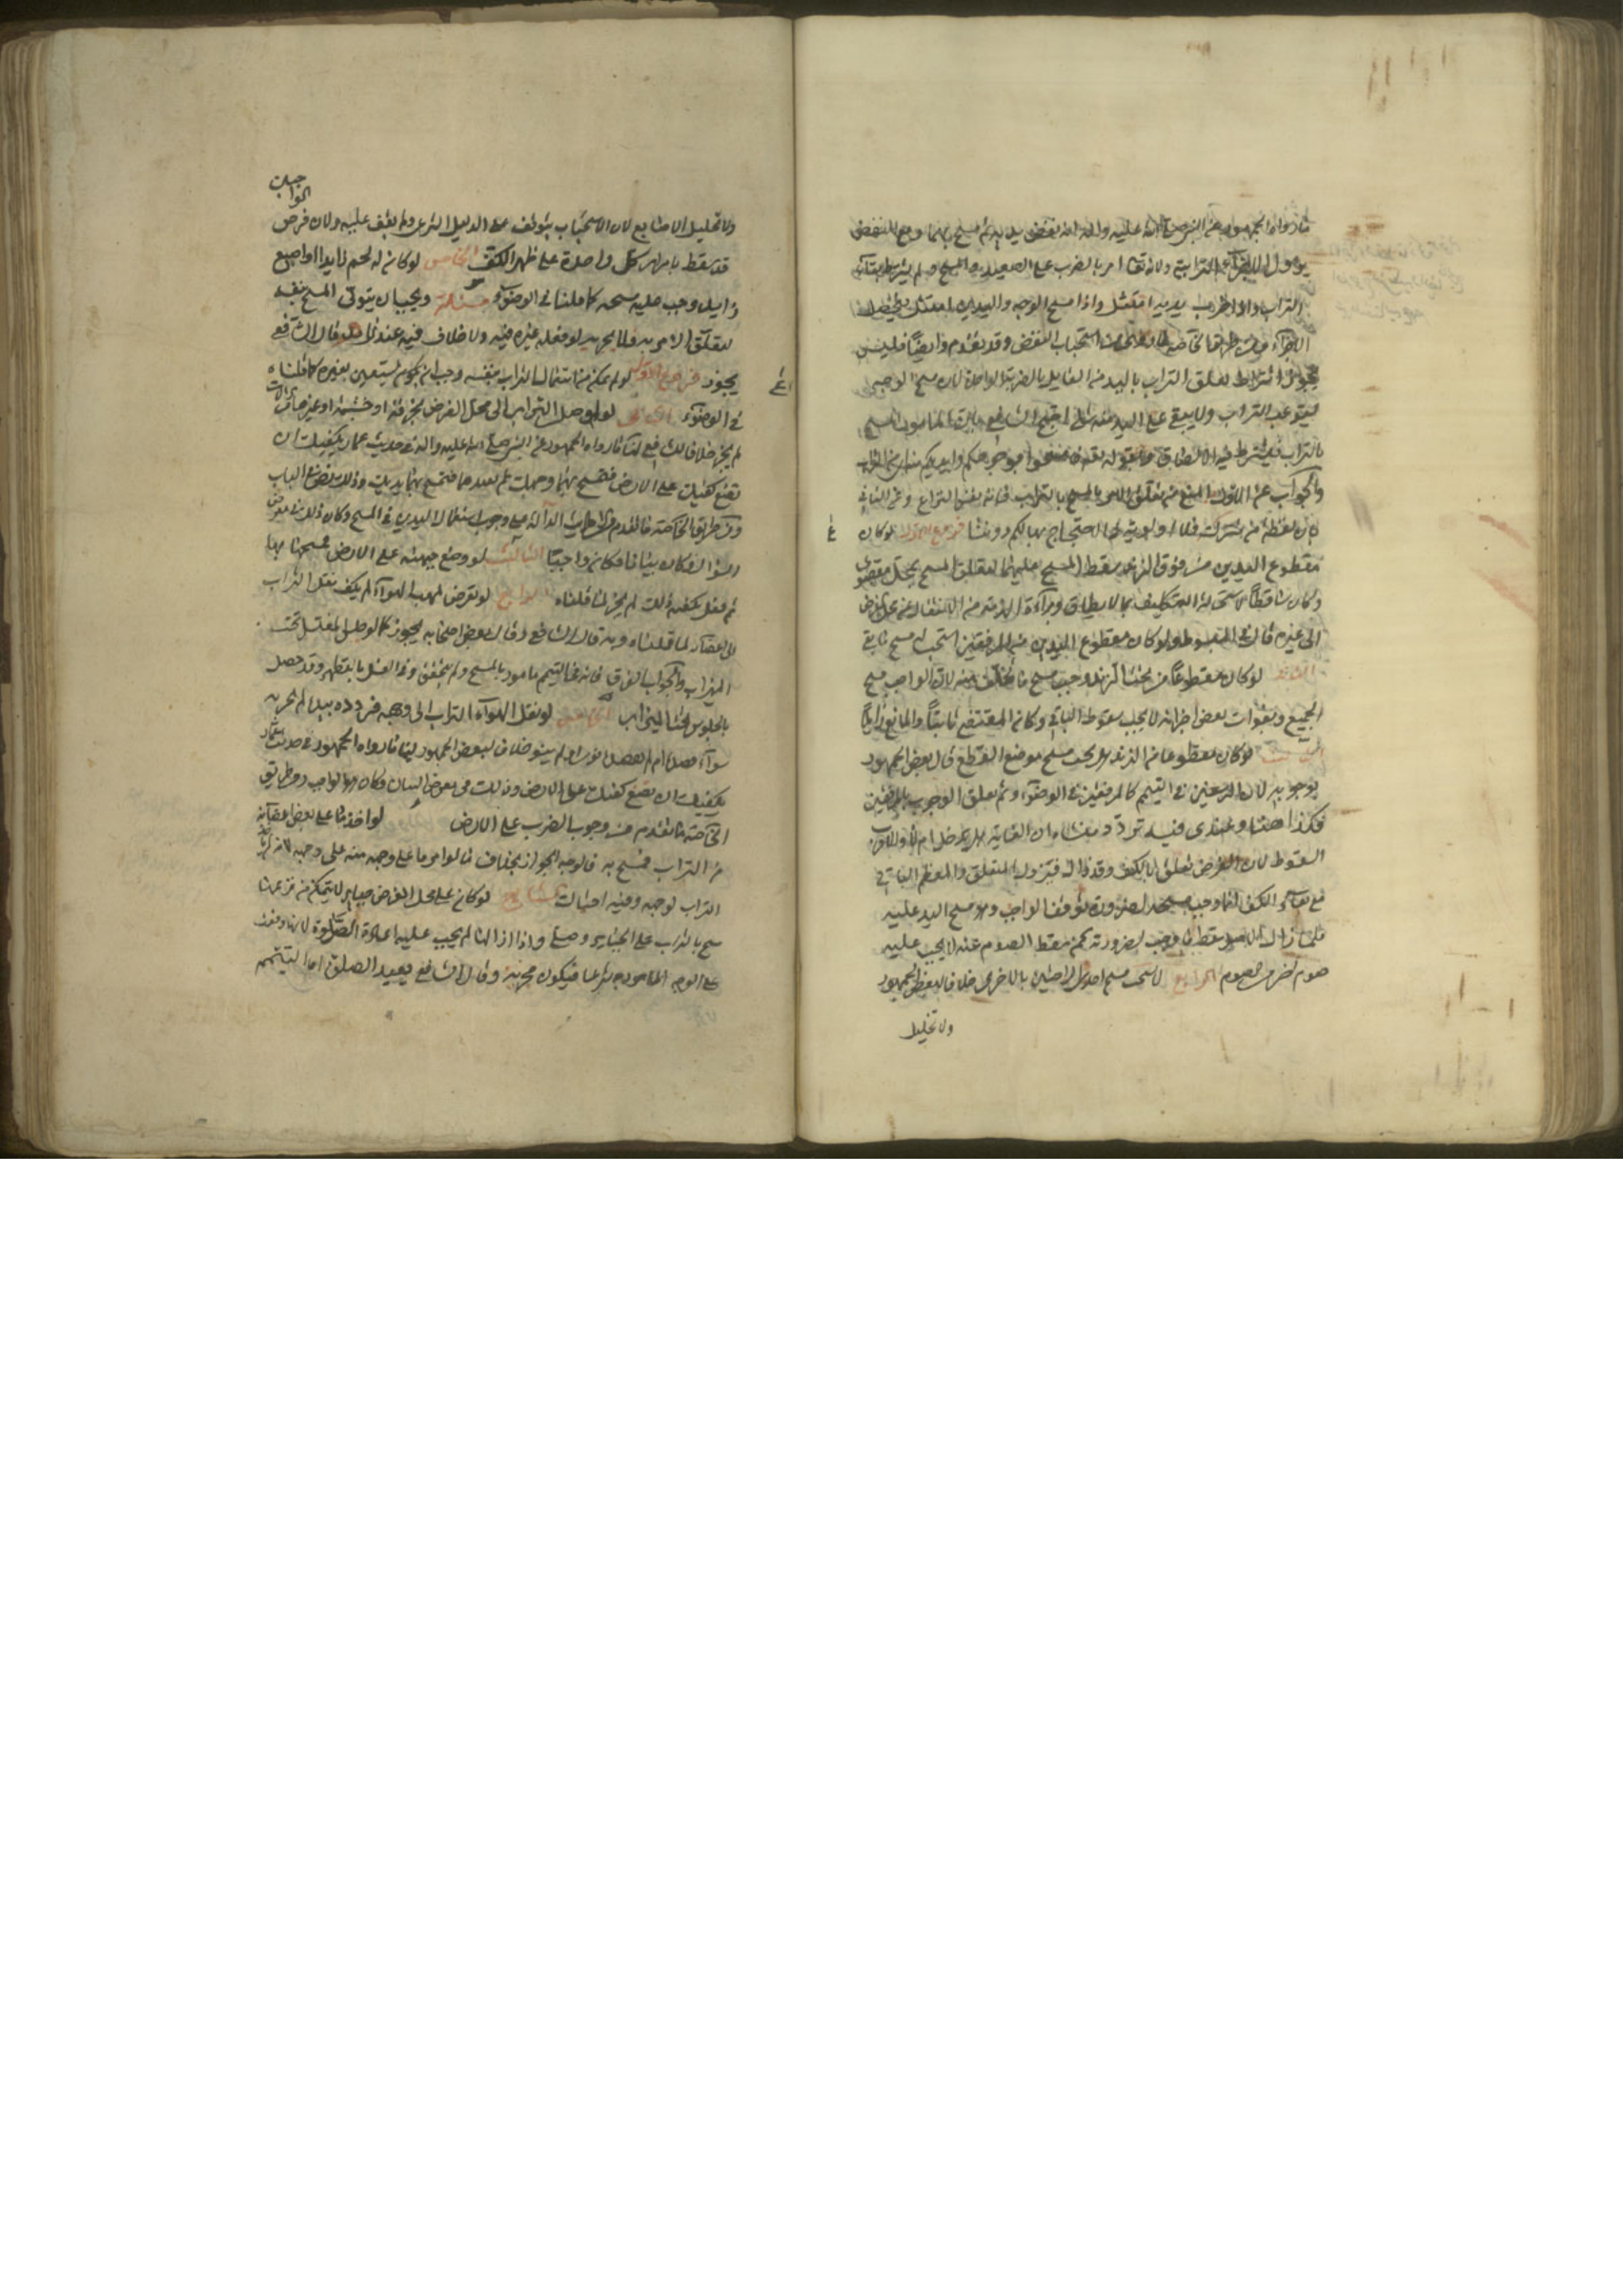 ما رواه الجمهور عن النبي صلى الله عليه واله انه نفض يديه ثم مسح بهما ومع النفض
يزول الاجزاء الترابية ولانه تعالى امر بالضرب على الصعيد والمسح ولم يشترط بقاء
التراب والاخر ضرب يديه امتثل واذا مسح الوجه واليدين امتثل
الاجزاء ومن طريق الخاصة استحباب النفض وقد تقدم وايضا فليس
يجوز اشتراط تعلق التراب باليد من القايل بالضربة الواحدة لان مسح الوجه
يستوعب التراب ولا يبقى على اليد منه شئ احتج الشافعي بان المامور المسح
بالتراب فيشترط فيه الالصاق وبقوله تعالى فامسحوا بوجوهكم وايديكم منه اي من التراب
والجواب عن الاول المنع من تعلق الامر بالمسح بالتراب فانه نفس النزاع وعن الثاني
بان لفظة من مشتركة فلا اولوية في الاحتجاج بها لكم دوننا فروع الاول لو كان
مقطوع اليدين من فوق الزند سقط المسح عليهما لتعلق المسح بمحل مفقود
وكان ساقطا لاستحالة التكليف بما لا يطاق وبراءة الذمة من الانتقال عن محل الفرض
الى غيره قال في المبسوط ولو كان مقطوع اليدين من المرفقين استحب له مسح ما بقى
الثانى لو كان مقطوعا من تحت الزند وجب مسح ما تخلف منه لان الواجب مسح
الجميع وبفوات بعض اجزائه لا يجب سقوط الباقي وكان المقتضى ثابتا والمانع زايلا
الثالث لو كان مقطوعا من الزند هل يجب مسح موضع القطع قال بعض الجمهور
بوجوبه لان الرسغين في التيمم كالمرفقين في الوضوء وثم تعلق الوجوب بالمرفقين
فكذا هنا وعندى فيه تردد منشاءه ان الغاية هل يدخل ام لا والاقرب
السقوط لان الفرض تعلق بالكف وقد زال فيزول المتعلق والمعظم الباقي
مع بقاء الكف انما وجب مسحه لضرورة توقف الواجب وهو مسح اليد عليه
فلما زال الاصل سقط ما وجب لضرورته كمن سقط الصوم عنه لا يجب عليه
صوم اخر من الصوم الرابع لا يستحب مسح احدى الراحتين بالاخرى خلافا لبعض الجمهور
ولا تخليل
الواجبين
ولا تخليل الاصابع لان الاستحباب يتوقف على الدليل الشرعى ولم نقف عليه ولان فرض
قد سقط بامرار كل واحدة على ظهر الكف الخامس لو كان له لحم زايد او اصبع
زايد وجب عليه مسحه كما قلنا في الوضوء مسئلة ويجب ان يتولى المسح بنفسه
لتعلق الامر به فلا يجزيه لو فعله غيره فيه ولا خلاف فيه عندنا وقال الشافعي
يجوز فروع الاول لو لم يتمكن من استعمال التراب بنفسه وجب ان يستعين بغيره كما قلناه
في الوضوء الثانى لو اوصل التراب الى محل الفرض بخرقة او خشبة او غير ذلك من الالات
لم يجز خلافا للشافعي لنا ما رواه الجمهور عن النبي صلى الله عليه واله في حديث عمار يكفيك ان
تضع كفيك على الارض فتمسح بهما وجهك ثم تعيدهما فتمسح بهما يديك وذلك نص في الباب
ومن طريق الخاصة ما تقدم من الاحاديث الدالة على وجوب استعمال اليدين في المسح وكان ذلك في معرض
السؤال فكان بيانا فكان واجبا الثالث لو وضع جبهته على الارض فمسحها بها
ثم فعل بكفيه ذلك لم يجز لما قلناه الرابع لو تعرض لمهب الهواء لم يكف بنقل التراب
الى اعضائه لما قلناه وبه قال الشافعي وقال بعض اصحابه يجوز كما لو جلس المغتسل تحت
الميزاب والجواب الفرق فانه في التيمم مامور بالمسح ولم يتحقق وفي الغسل بالتطهر وقد حصل
بالجلوس تحت الميزاب الخامس لو نقل الهواء التراب الى وجهه فردده بيده لم يجز به
سواء فصله ام لم يفصله خلافا لبعض الجمهور لنا ما رواه الجمهور في حديث عمار
يكفيك ان تضع كفيك على الارض وذلك في معرض البيان وكان هو الواجب ومن طريق
الخاصة ما تقدم من وجوب الضرب على الارض لو اخذ ما على بعض اعضائه
من التراب فمسح به فالوجه الجواز بخلاف ما لو امر ما على وجهه منه على وجهه لانه لم ياخذ
التراب لوجهه وفيه احتمال السابع لو كان على محل الفرض جباير لا يتمكن من نزعها
مسح بالتراب على الجباير وصلى واذا ازالها لم يجب عليه اعادة الصلوة لانها وقعت
على الوجه المامور به شرعا فيكون مجزئة وقال الشافعي يعيد الصلوة اما التيمم